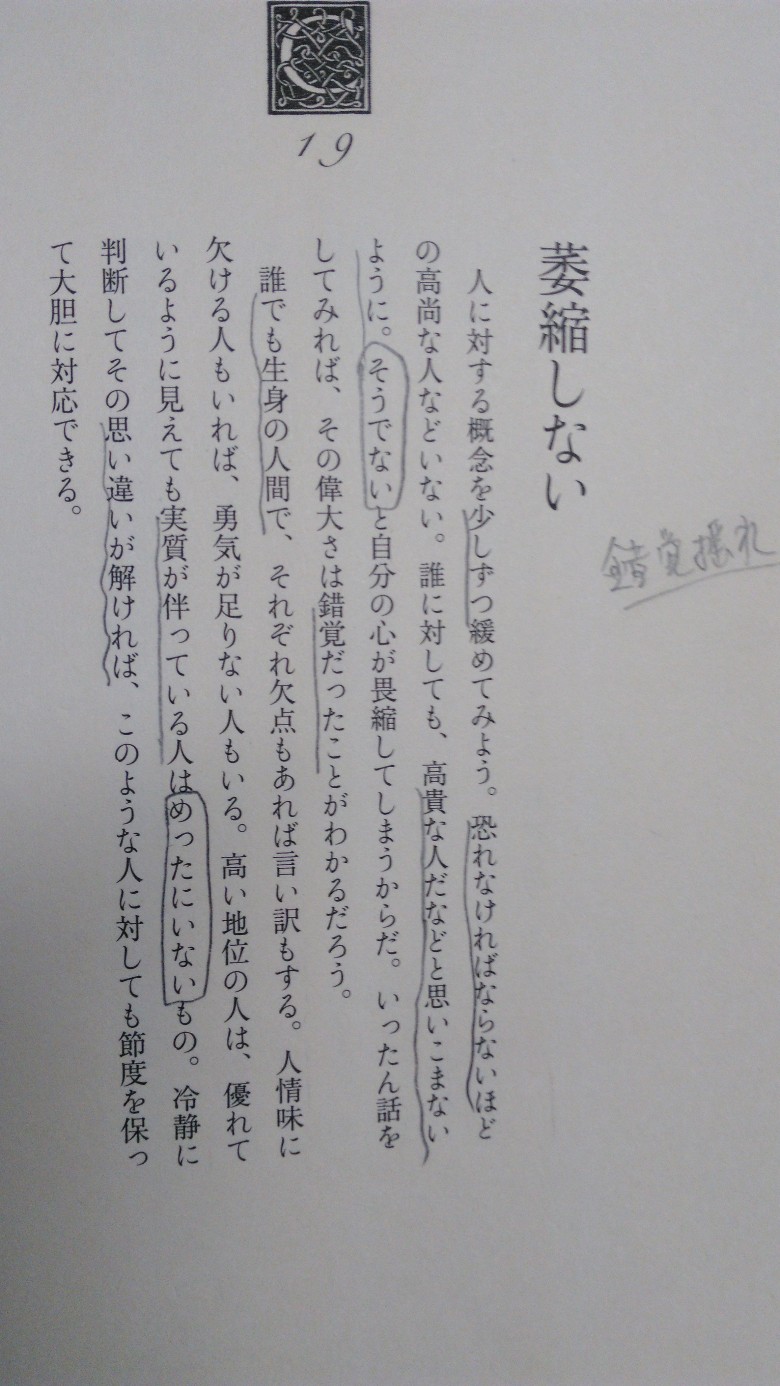 19
錯覚
萎縮しない
人に対する概念を少しずつ緩めてみよう。恐れなければならないほど
の高尚な人などいない。誰に対しても、高貴な人だなどと思いこまない
ように。そうでないと自分の心が畏縮してしまうからだ。いったん話を
してみれば、その偉大さは錯覚だったことがわかるだろう。
誰でも生身の人間で、それぞれ欠点もあれば言い訳もする。人情味に
欠ける人もいれば、勇気が足りない人もいる。高い地位の人は、優れて
いるように見えても実質が伴っている人はめったにいないもの。冷静に
判断してその思い違いが解ければ、このような人に対しても節度を保っ
て大胆に対応できる。